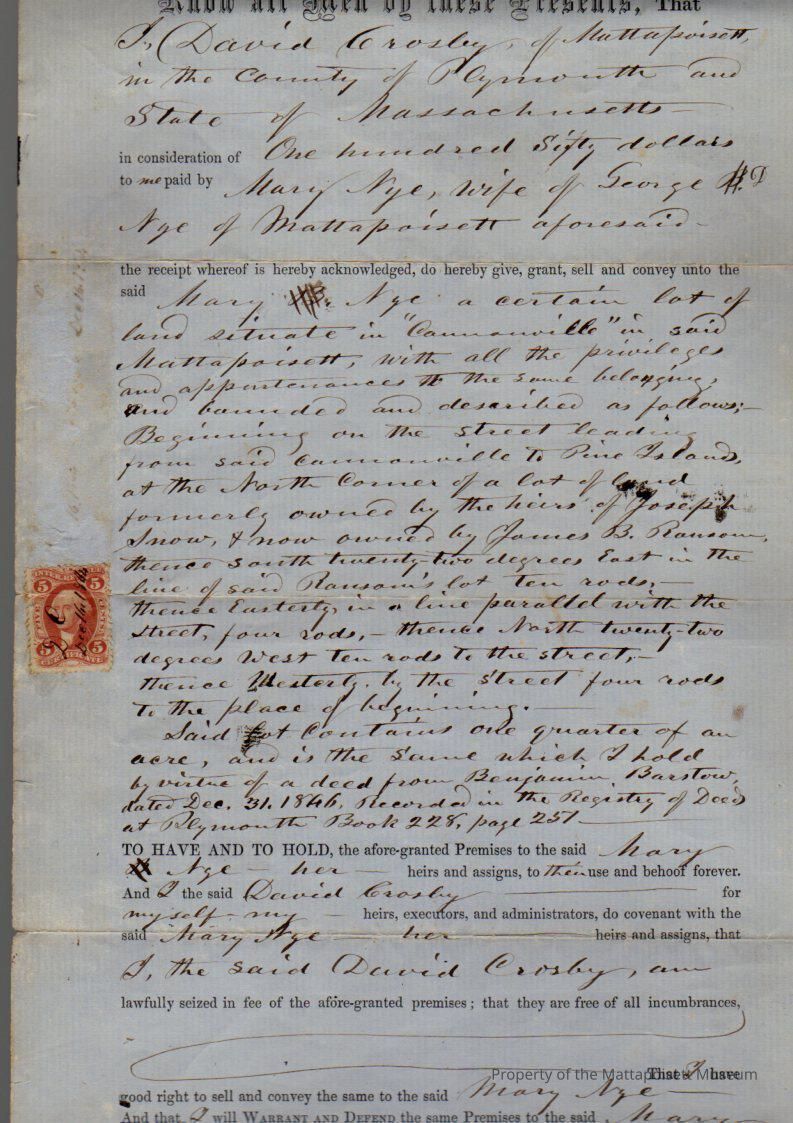 Know all Men by these Presents, That
I, David Crosby, of Mattapoisett,
in the County of Plymouth and
State of Massachusetts
in consideration of One hundred Sixty dollars
to me paid by Mary Nye, wife of George D
Nye of Mattapoisett aforesaid
the receipt whereof is hereby acknowledged, do hereby give, grant, sell and convey unto the
said Mary Nye a certain lot of
land situate in "Cannonville" in said
Mattapoisett, with all the privileges
and appurtenances to the same belonging,
and bounded and described as follows;
Beginning on the street leading
from said Cannonville to Pine Islands,
at the North Corner of a lot of land
formerly owned by the heirs of Joseph
Snow, & now owned by James B. Ransom,
thence south twenty-two degrees East in the
line of said Ransom's lot ten rods,
thence Easterly, in a line parallel with the
street, four rods,- thence North twenty-two
degrees West ten rods to the street,-
thence Westerly, by the street four rods
to the place of beginning.
Said Lot contains one quarter of an
acre, and is the same which I hold
by virtue of a deed from Benjamin Barstow,
dated Dec. 31. 1846, Recorded in the Registry of Deeds
at Plymouth Book 228, page 257
TO HAVE AND TO HOLD, the afore-granted Premises to the said Mary
Nye her heirs and assigns, to their use and behoof forever.
And I the said David Crosby for
myself my heirs, executors, and administrators, do covenant with the
said Mary Nye her heirs and assigns, that
I, the said David Crosby, am
lawfully seized in fee of the afore-granted premises; that they are free of all incumbrances,
That I have
Property of the Mattapoisett Museum
good right to sell and convey the same to the said Mary Nye
And that I will WARRANT AND DEFEND the same Premises to the said Mary
5 5
D C
5 5